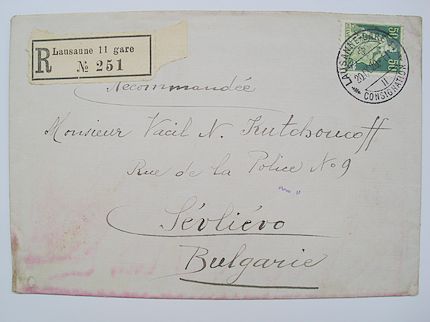 Lausanne 11 gare
R № 251
50
LAUSANNE-GARE
20.
II
CONSIGNATION
Recommandée
Monsieur Vacil N. Kutschoucoff
Rue de la Police No 9
Sévliévo
Bulgarie